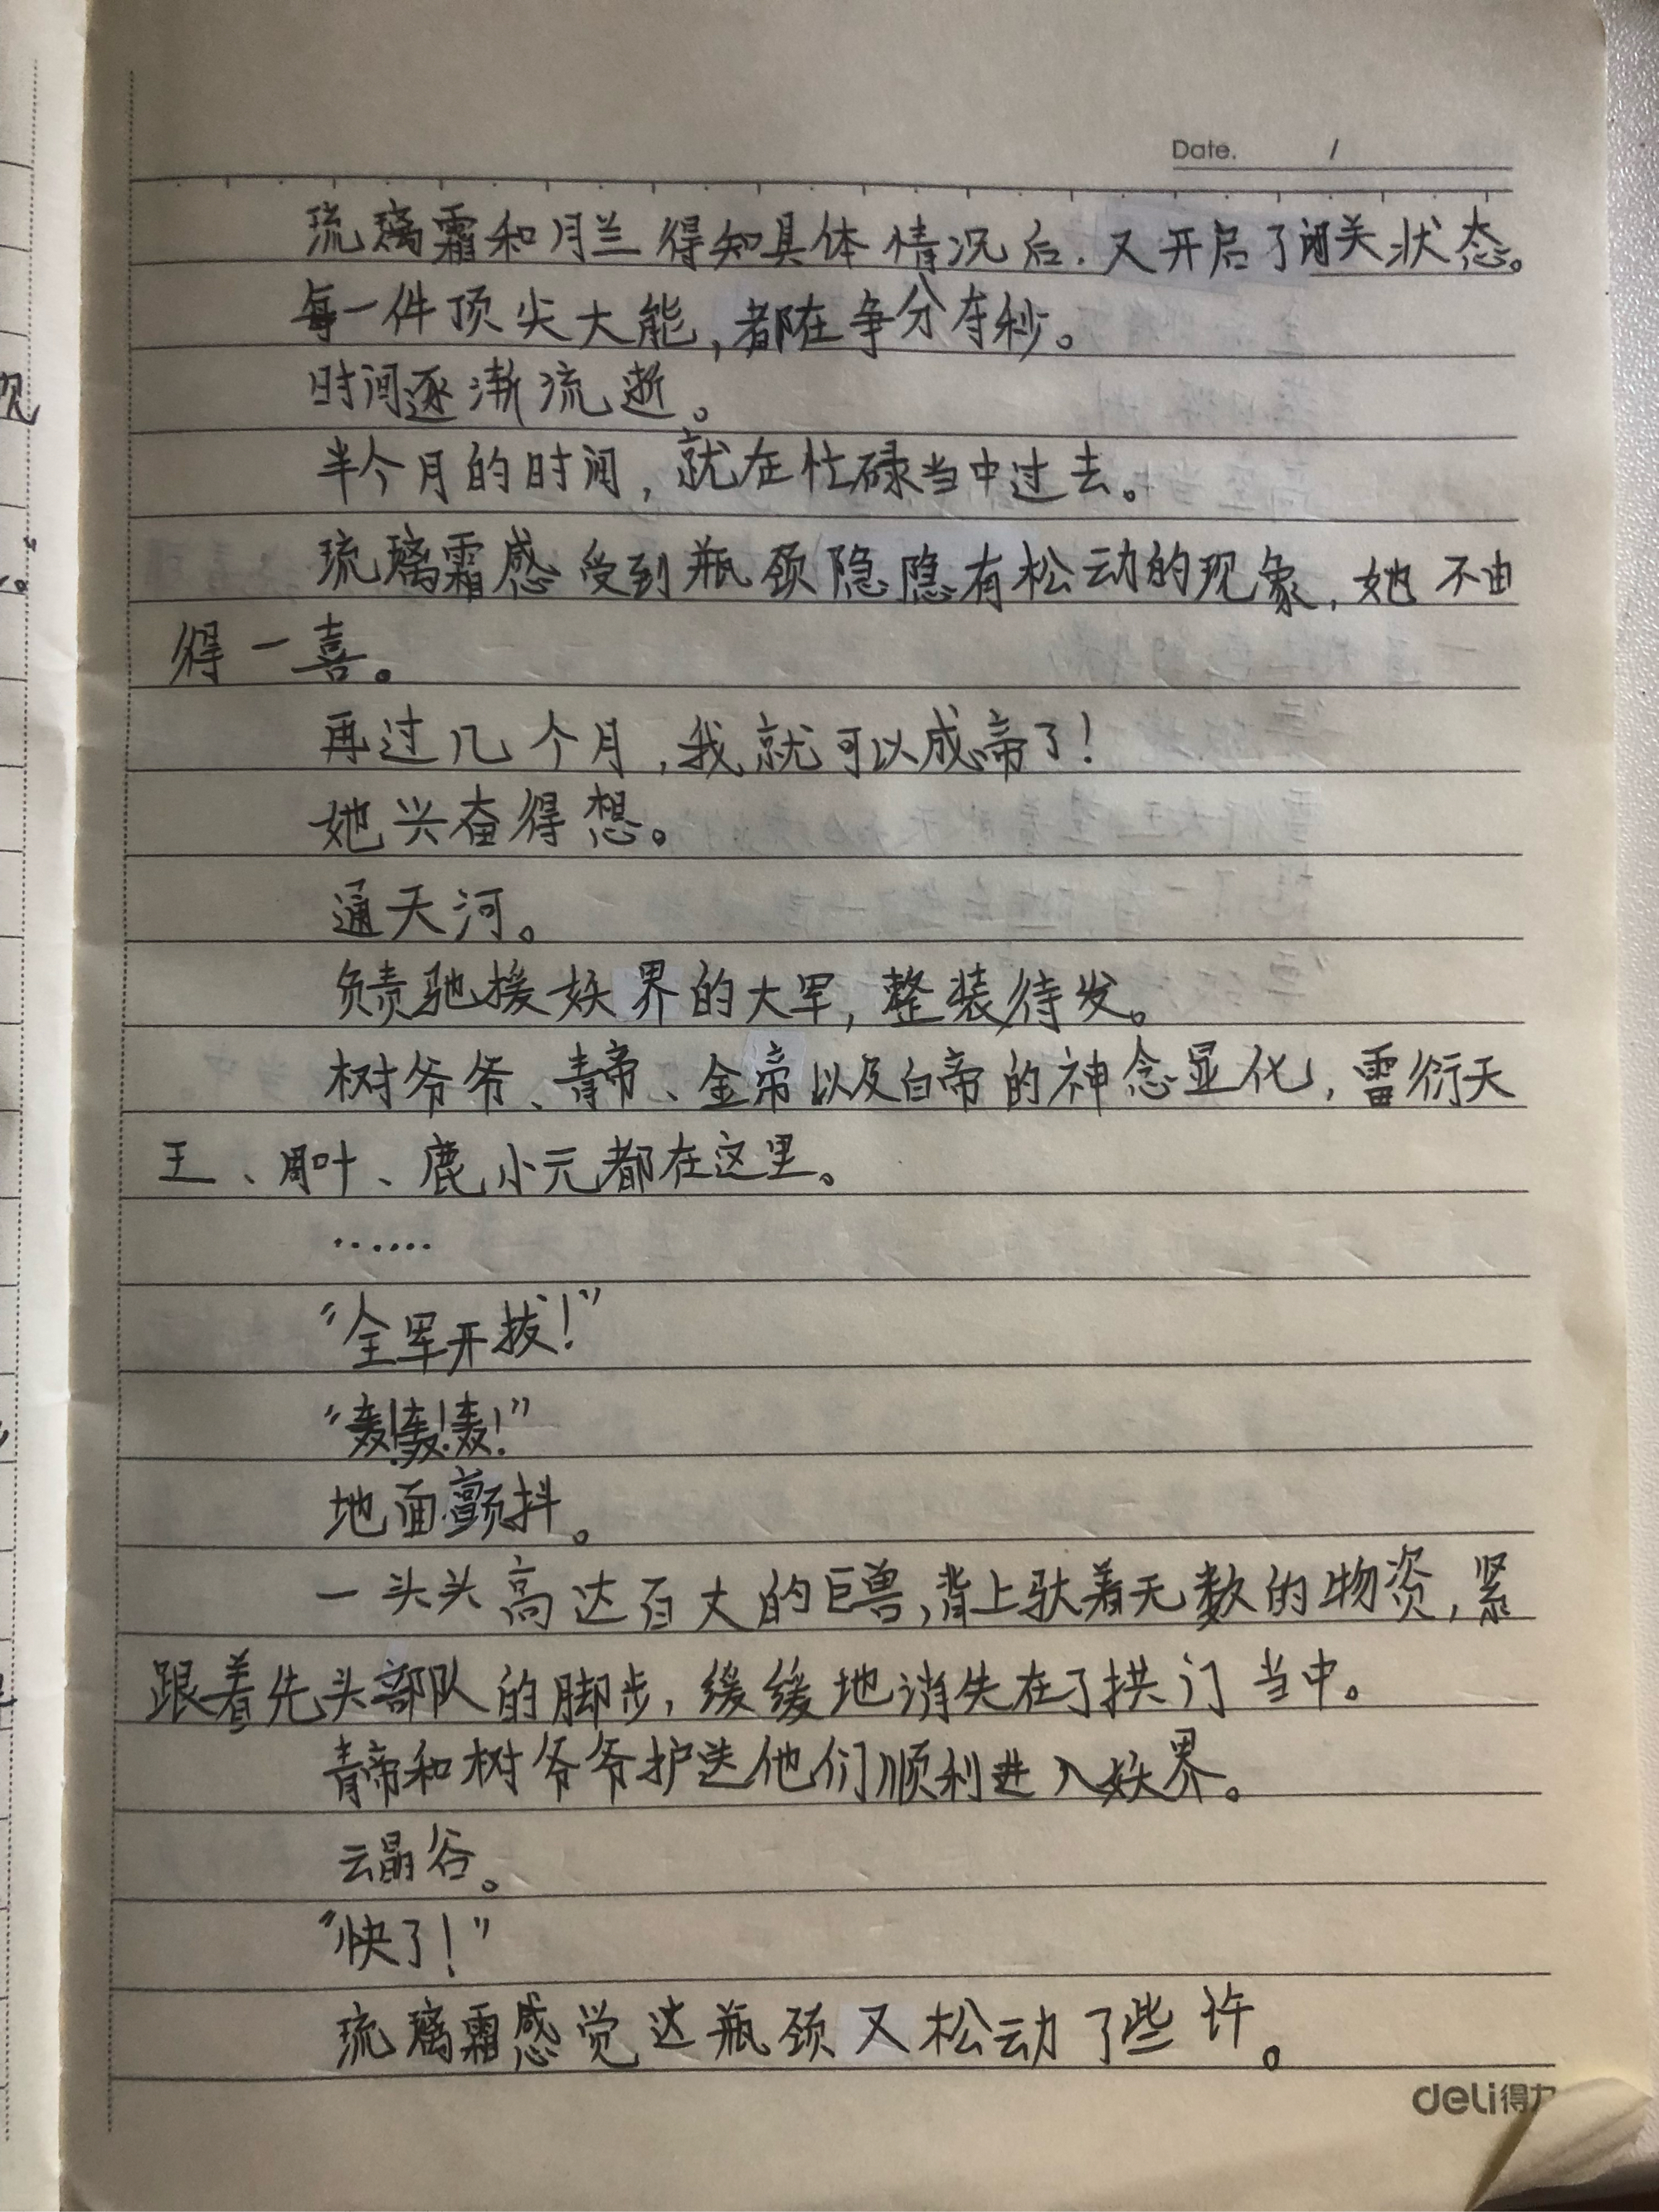 Date. /
琉璃霜和月兰得知具体情况后.又开启了闭关状态。
每一件顶尖大能,都在争分夺秒。
时间逐渐流逝。
半个月的时间,就在忙碌当中过去。
琉璃霜感受到瓶颈隐隐有松动的现象,她不由
得一喜。
再过几个月,我就可以成帝了!
她兴奋得想。
通天河。
负责驰援妖界的大军,整装待发。
树爷爷、青帝、金帝以及白帝的神念显化,雷衍天
王、周叶、鹿小元都在这里。
......
“全军开拔!”
“轰!轰!轰!”
地面颤抖。
一头头高达百丈的巨兽,背上驮着无数的物资,紧
跟着先头部队的脚步,缓缓地消失在了拱门当中。
青帝和树爷爷护送他们顺利进入妖界。
云晶谷。
“快了!”
琉璃霜感觉这瓶颈又松动了些许。
deli得力